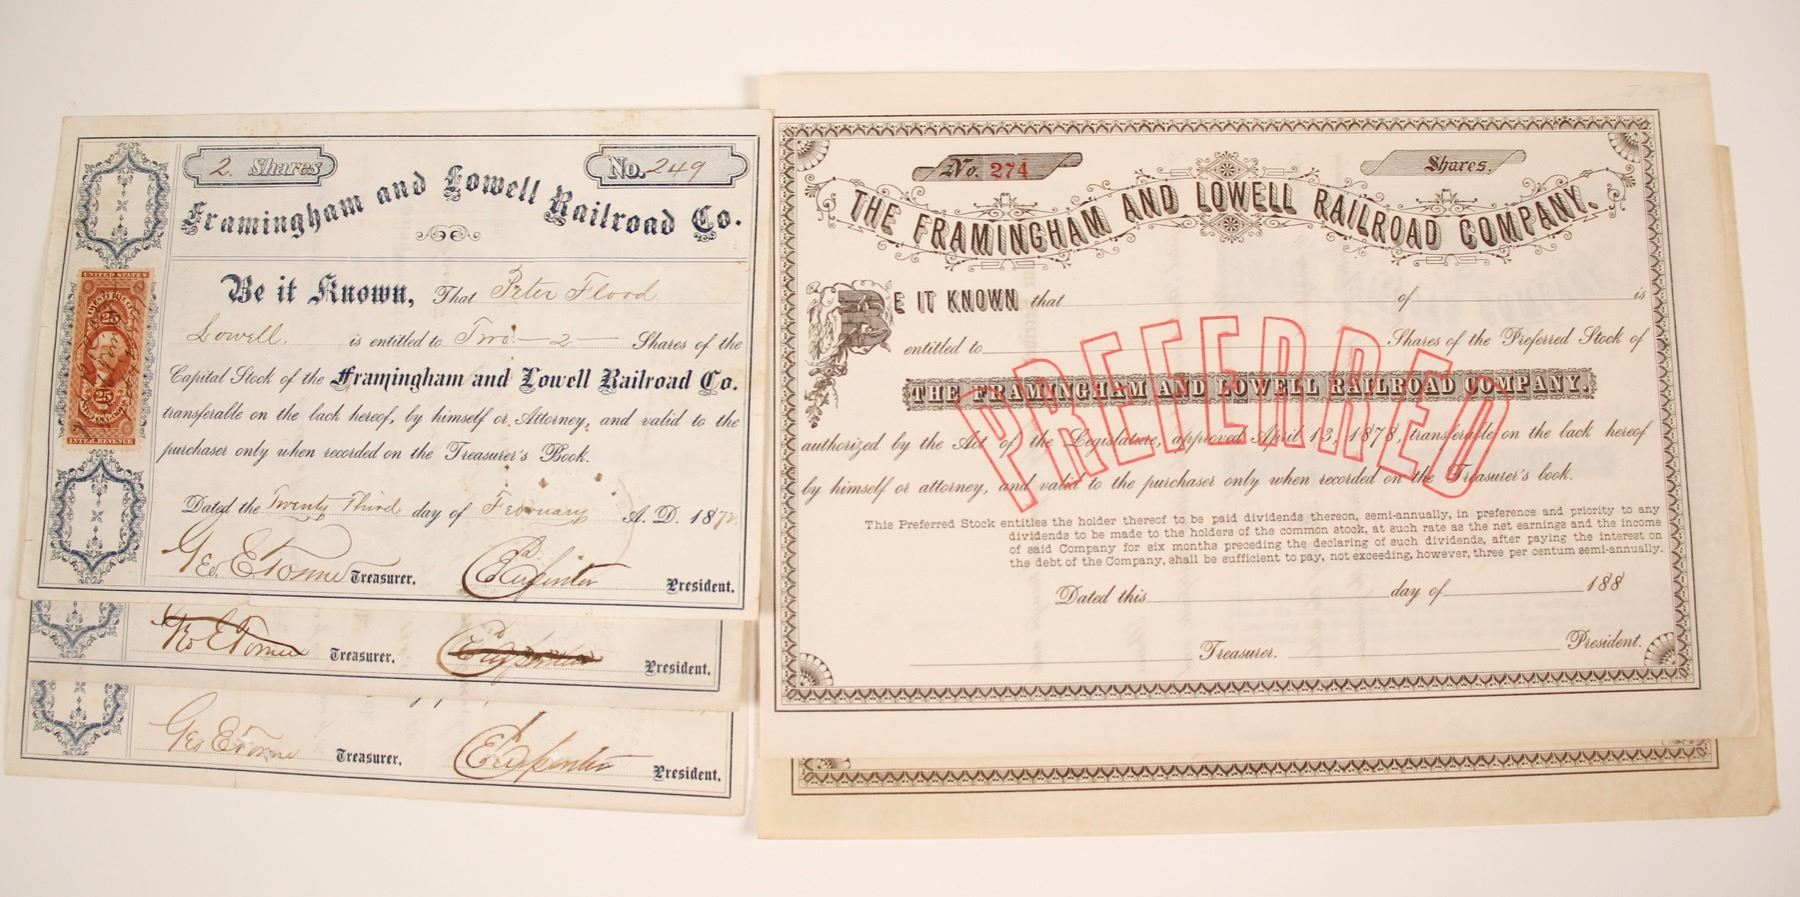 2. Shares
No. 249
Framingham and Lowell Railroad Co.
Be it Known, That Peter Flood
Lowell. is entitled to Two - 2 - Shares of the
Capital Stock of the Framingham and Lowell Railroad Co.
transferable on the back hereof, by himself or Attorney, and valid to the
purchaser only when recorded on the Treasurer's Book.
Dated the Twenty Third day of February A. D. 1872
Treasurer.
President.
UNITED STATES
25
25
INTER. REVENUE
Treasurer.
President.
Treasurer.
President.
No. 274
Shares.
THE FRAMINGHAM AND LOWELL RAILROAD COMPANY.
BE IT KNOWN that of is
entitled to Shares of the Preferred Stock of
THE FRAMINGHAM AND LOWELL RAILROAD COMPANY.
PREFERRED
authorized by the Act of the Legislature, approved April 13, 1878, transferable on the back hereof
by himself or attorney, and valid to the purchaser only when recorded on the Treasurer's book.
This Preferred Stock entitles the holder thereof to be paid dividends thereon, semi-annually, in preference and priority to any
dividends to be made to the holders of the common stock, at such rate as the net earnings and the income
of said Company for six months preceding the declaring of such dividends, after paying the interest on
the debt of the Company, shall be sufficient to pay, not exceeding, however, three per centum semi-annually.
Dated this day of 188
Treasurer.
President.